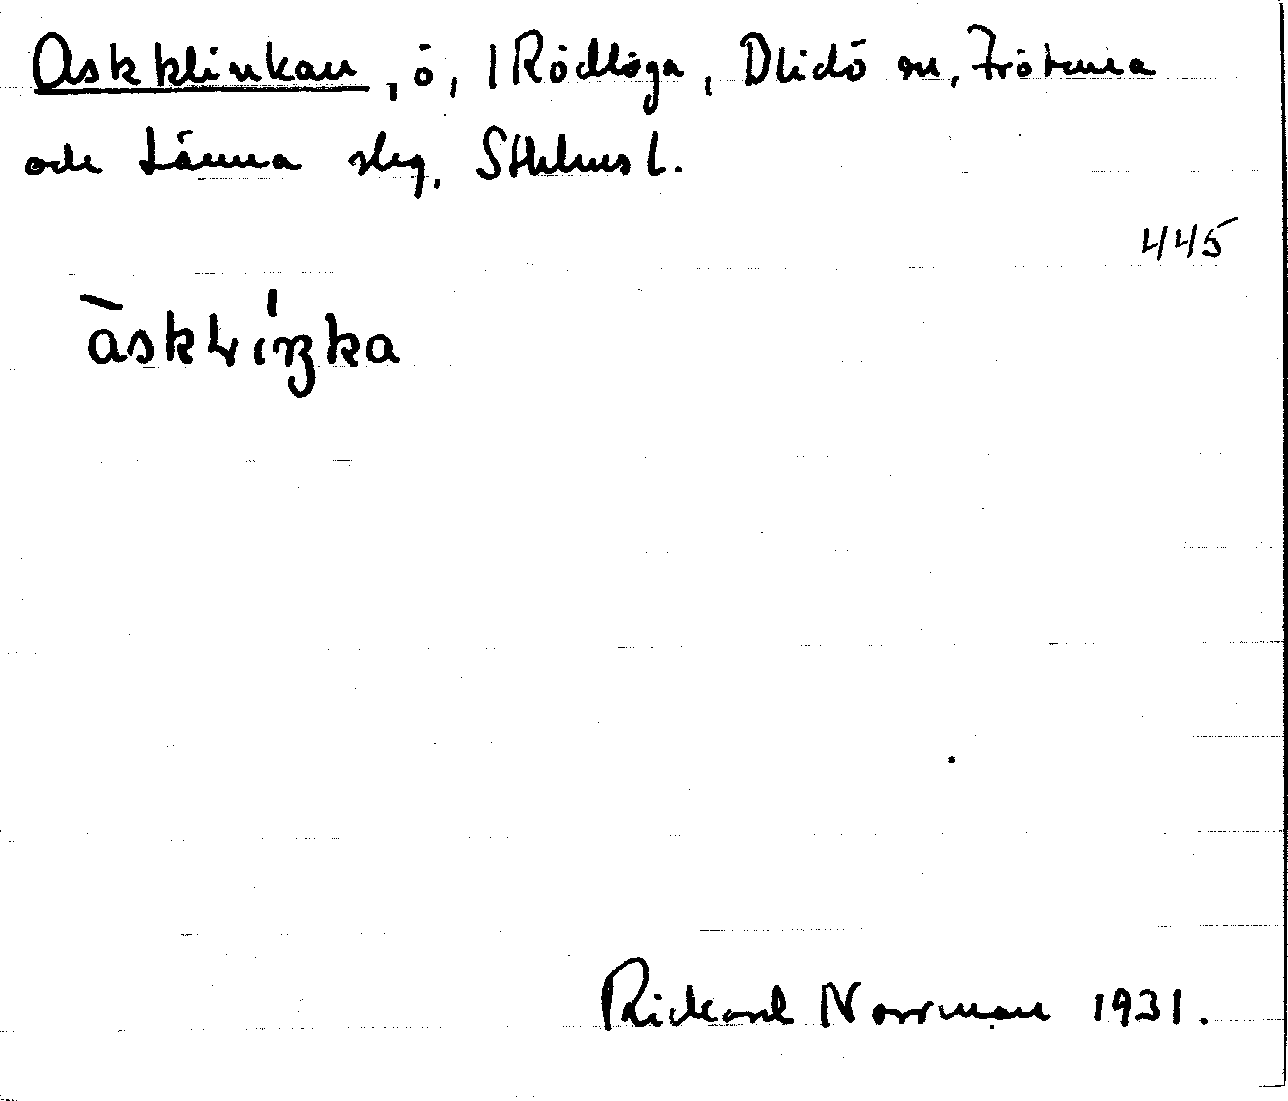 Askklinkan, ö, 1 Rödlöga, Blidö sn, Frötuna
och Länna slg, Sthlms l.
445
àskklíŋka
Rickard Norrman 1931.